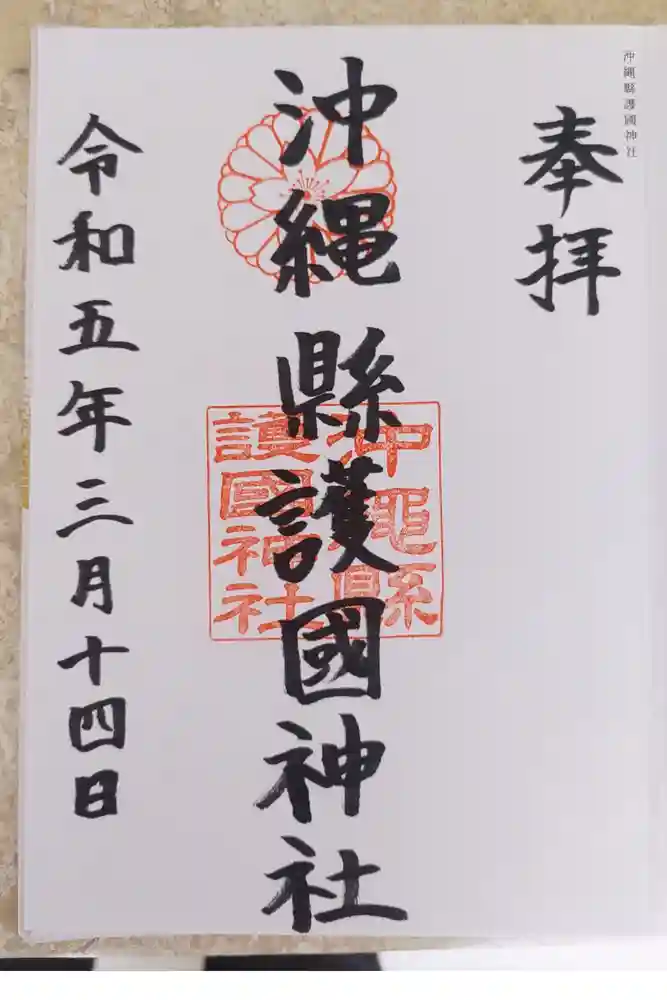 沖縄縣護國神社
奉拝
沖縄縣護國神社
沖縄縣
護國神社
令和五年三月十四日